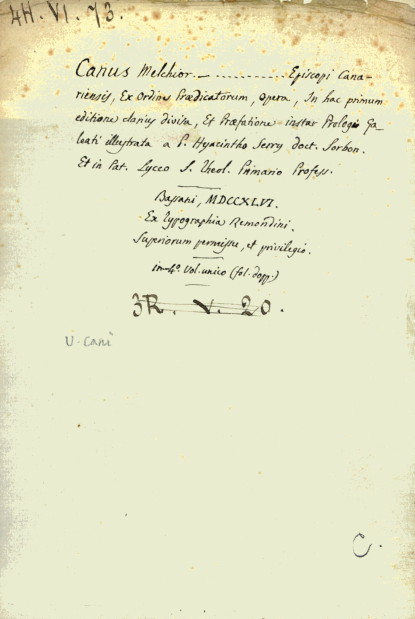 4H. VI. 73.
Canus Melchior. — ............ Episcopi Cana-
riensis, Ex Ordine Prædicatorum, opera, In hac primum
editione clarius divisa, Et Præfatione instar Prologi Ga-
leati illustrata a P. Hyacintho Serry doct. Sorbon.
Et in Pat. Lyceo S. Theol. Primario Profess.
Bassani, MDCCXLVI.
Ex Typographia Remondini.
Superiorum permissu, et privilegio.
in-4º. Vol. unico (fol. dopp.)
3R. V. 20.
V. Cani
C.